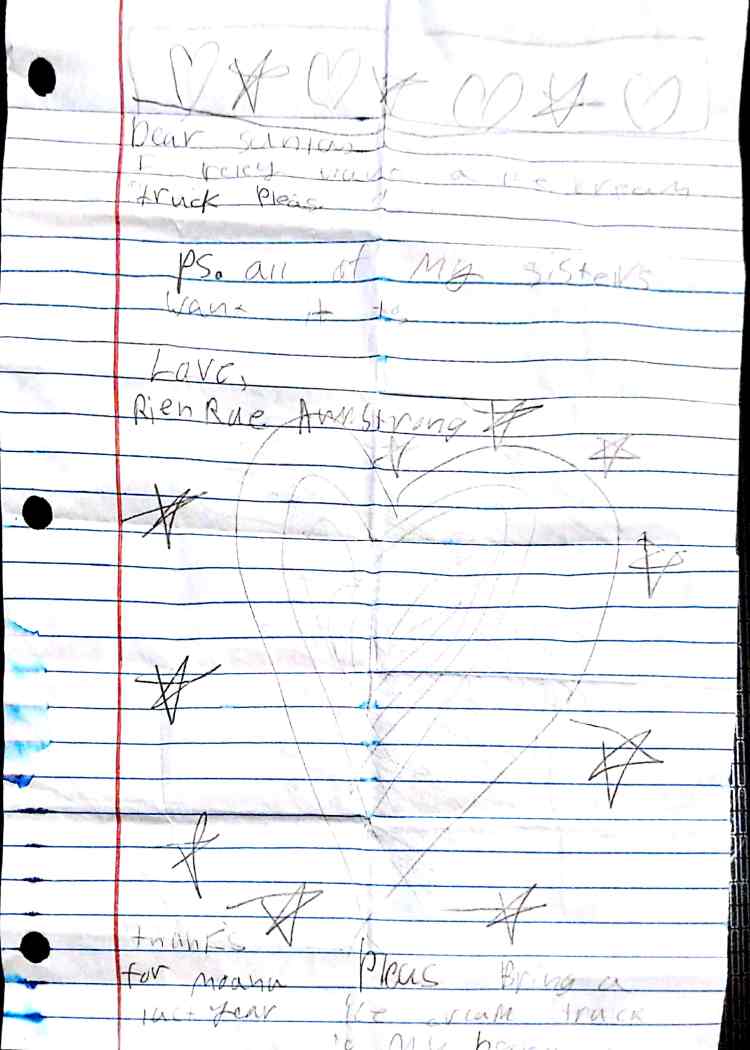 Dear suntas
I reley wan a ice cream
truck Pleas
Ps. all of My sisters
wan + to
Love,
Rien Rae Armstrong
thanks
for moana
last year
Pleas Bring a
ice cream truck
to My